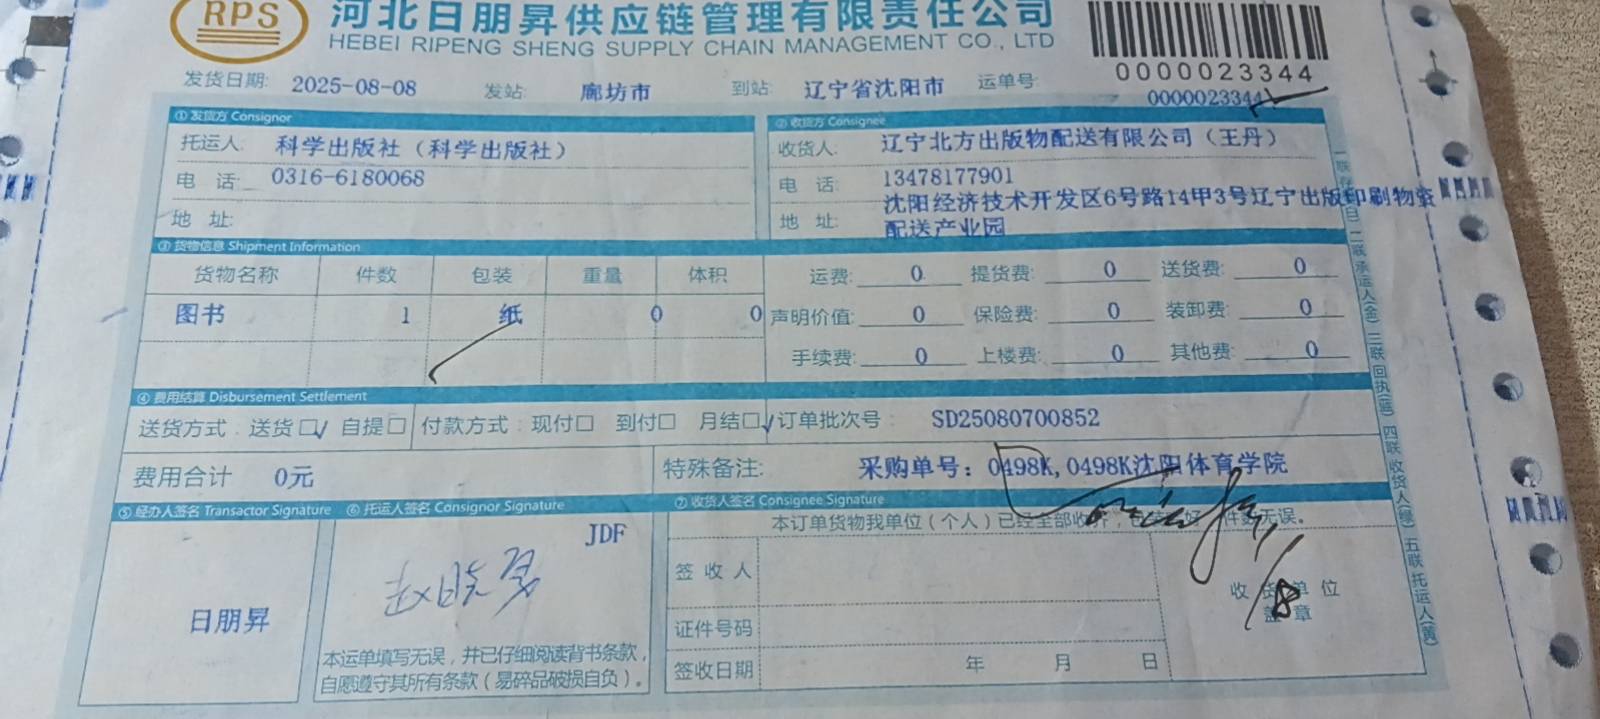 RPS 河北日朋昇供应链管理有限责任公司
HEBEI RIPENG SHENG SUPPLY CHAIN MANAGEMENT CO., LTD
0000023344
发货日期: 2025-08-08 发站: 廊坊市 到站: 辽宁省沈阳市 运单号: 0000023344
① 发货方 Consignor ② 收货方 Consignee
托运人: 科学出版社（科学出版社） 收货人: 辽宁北方出版物配送有限公司（王丹）
电 话: 0316-6180068 电 话: 13478177901
地 址: 地 址: 沈阳经济技术开发区6号路14甲3号辽宁出版印刷物资
配送产业园
③ 货物信息 Shipment Information
货物名称 件数 包装 重量 体积 运费: 0 提货费: 0 送货费: 0
图书 1 纸 0 0 声明价值: 0 保险费: 0 装卸费: 0
手续费: 0 上楼费: 0 其他费: 0
④ 费用结算 Disbursement Settlement
送货方式: 送货□√ 自提□ 付款方式: 现付□ 到付□ 月结□√ 订单批次号: SD25080700852
费用合计 0元 特殊备注: 采购单号：0498K,0498K沈阳体育学院
⑤ 经办人签名 Transactor Signature ⑥ 托运人签名 Consignor Signature ⑦ 收货人签名 Consignee Signature
本订单货物我单位（个人）已经全部收件，包装完好，件数无误。
JDF
日朋昇 赵晓勇
签收人
收货单位
盖章
证件号码
签收日期 年 月 日
本运单填写无误，并已仔细阅读背书条款，
自愿遵守其所有条款（易碎品破损自负）。
二联 承运人(金) 三联 回执(蓝) 四联 收货人(绿) 五联 托运人(黄)